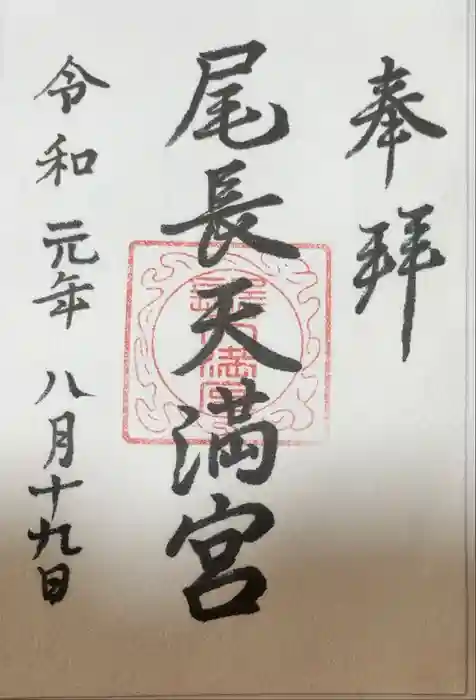 奉拝
尾長天満宮
令和元年八月十九日